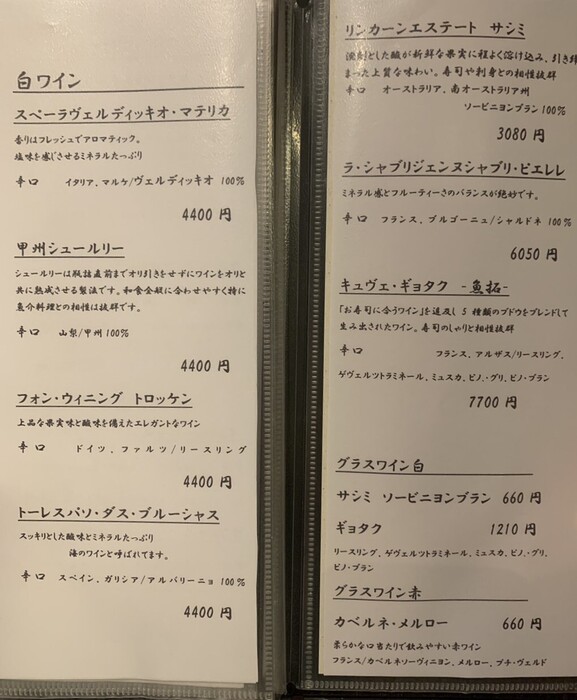 白ワイン
スペーラヴェルディッキオ・マテリカ
香りはフレッシュでアロマティック。
塩味を感じさせるミネラルたっぷり
辛口 イタリア、マルケ/ヴェルディッキオ 100%
4400 円
甲州シュールリー
シュールリーは瓶詰直前までオリ引きをせずにワインをオリと
共に熟成させる製法です。和食全般に合わせやすく特に
魚介料理との相性は抜群です。
辛口 山梨/甲州 100%
4400 円
フォン・ウィニング トロッケン
上品な果実味と酸味を備えたエレガントなワイン
辛口 ドイツ、ファルツ/リースリング
4400 円
トーレスパソ・ダス・ブルーシャス
スッキリとした酸味とミネラルたっぷり
海のワインと呼ばれてます。
辛口 スペイン、ガリシア/アルバリーニョ 100%
4400 円
リンカーンエステート サシミ
溌剌とした酸が新鮮な果実に程よく溶け込み、引き締
まった上質な味わい。寿司や刺身との相性抜群
辛口 オーストラリア、南オーストラリア州
ソービニヨンブラン 100%
3080 円
ラ・シャブリジェンヌシャブリ・ピエレレ
ミネラル感とフルーティーさのバランスが絶妙です。
辛口 フランス、ブルゴーニュ/シャルドネ 100%
6050 円
キュヴェ・ギョタク -魚拓-
「お寿司に合うワイン」を追及し 5 種類のブドウをブレンドして
生み出されたワイン。寿司のしゃりと相性抜群
辛口 フランス、アルザス/リースリング、
ゲヴェルツトラミネール、ミュスカ、ピノ・グリ、ピノ・ブラン
7700 円
グラスワイン白
サシミ ソービニヨンブラン 660 円
ギョタク 1210 円
リースリング、ゲヴェルツトラミネール、ミュスカ、ピノ・グリ、
ピノ・ブラン
グラスワイン赤
カベルネ・メルロー 660 円
柔らかな口当たりで飲みやすい赤ワイン
フランス/カベルネソーヴィニヨン、メルロー、プチ・ヴェルド